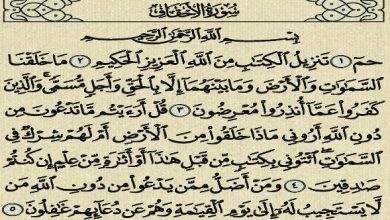 سورة الأحقاف
بسم الله الرحمن الرحيم
حمٓ ۝١ تَنزِيلُ الْكِتَابِ مِنَ اللَّهِ الْعَزِيزِ الْحَكِيمِ ۝٢ مَا خَلَقْنَا
السَّمَاوَاتِ وَالْأَرْضَ وَمَا بَيْنَهُمَا إِلَّا بِالْحَقِّ وَأَجَلٍ مُّسَمًّى وَالَّذِينَ
كَفَرُوا عَمَّا أُنذِرُوا مُعْرِضُونَ ۝٣ قُلْ أَرَءَيْتُم مَّا تَدْعُونَ مِن
دُونِ اللَّهِ أَرُونِي مَاذَا خَلَقُوا مِنَ الْأَرْضِ أَمْ لَهُمْ شِرْكٌ فِي
السَّمَاوَاتِ ائْتُونِي بِكِتَابٍ مِّن قَبْلِ هَٰذَا أَوْ أَثَارَةٍ مِّنْ عِلْمٍ إِن كُنتُمْ
صَادِقِينَ ۝٤ وَمَنْ أَضَلُّ مِمَّن يَدْعُوا مِن دُونِ اللَّهِ مَن
لَّا يَسْتَجِيبُ لَهُ إِلَىٰ يَوْمِ الْقِيَامَةِ وَهُمْ عَن دُعَائِهِمْ غَافِلُونَ ۝٥